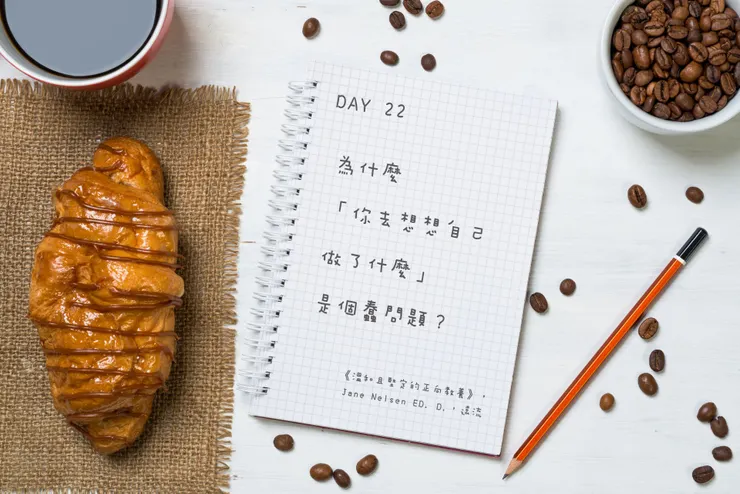 DAY 22
為什麼
「你去想想自己
做了什麼」
是個蠢問題？
《溫和且堅定的正向教養》，
Jane Nelsen ED. D.，遠流